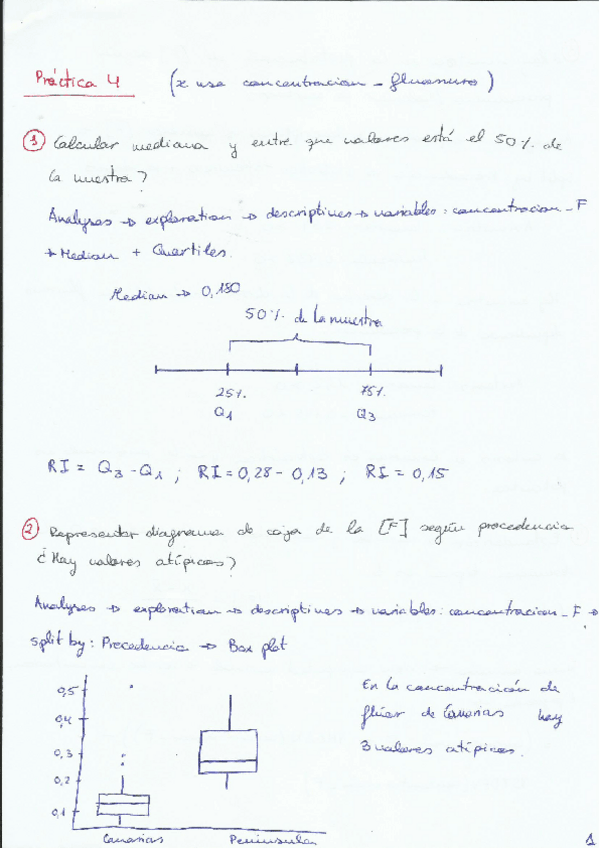 Práctica 4 (x usa concentracion - fluoruro)
1 Calcular mediana y entre que valores está el 50% de
la muestra?
Analyses → exploration → descriptives → variables: concentracion_F
→ Median + Quartiles.
Median → 0,180
50% de la muestra
25% 75%
Q1 Q3
RI = Q3 - Q1 ; RI = 0,28 - 0,13 ; RI = 0,15
2 Representar diagrama de caja de la [F] según procedencia
¿Hay valores atípicos?
Analyses → exploration → descriptives → variables: concentracion_F →
split by: Procedencia → Box plot
En la concentración de
flúor de Canarias hay
3 valores atípicos.
0,5
0,4
0,3
0,2
0,1
Canarias Peninsular
1